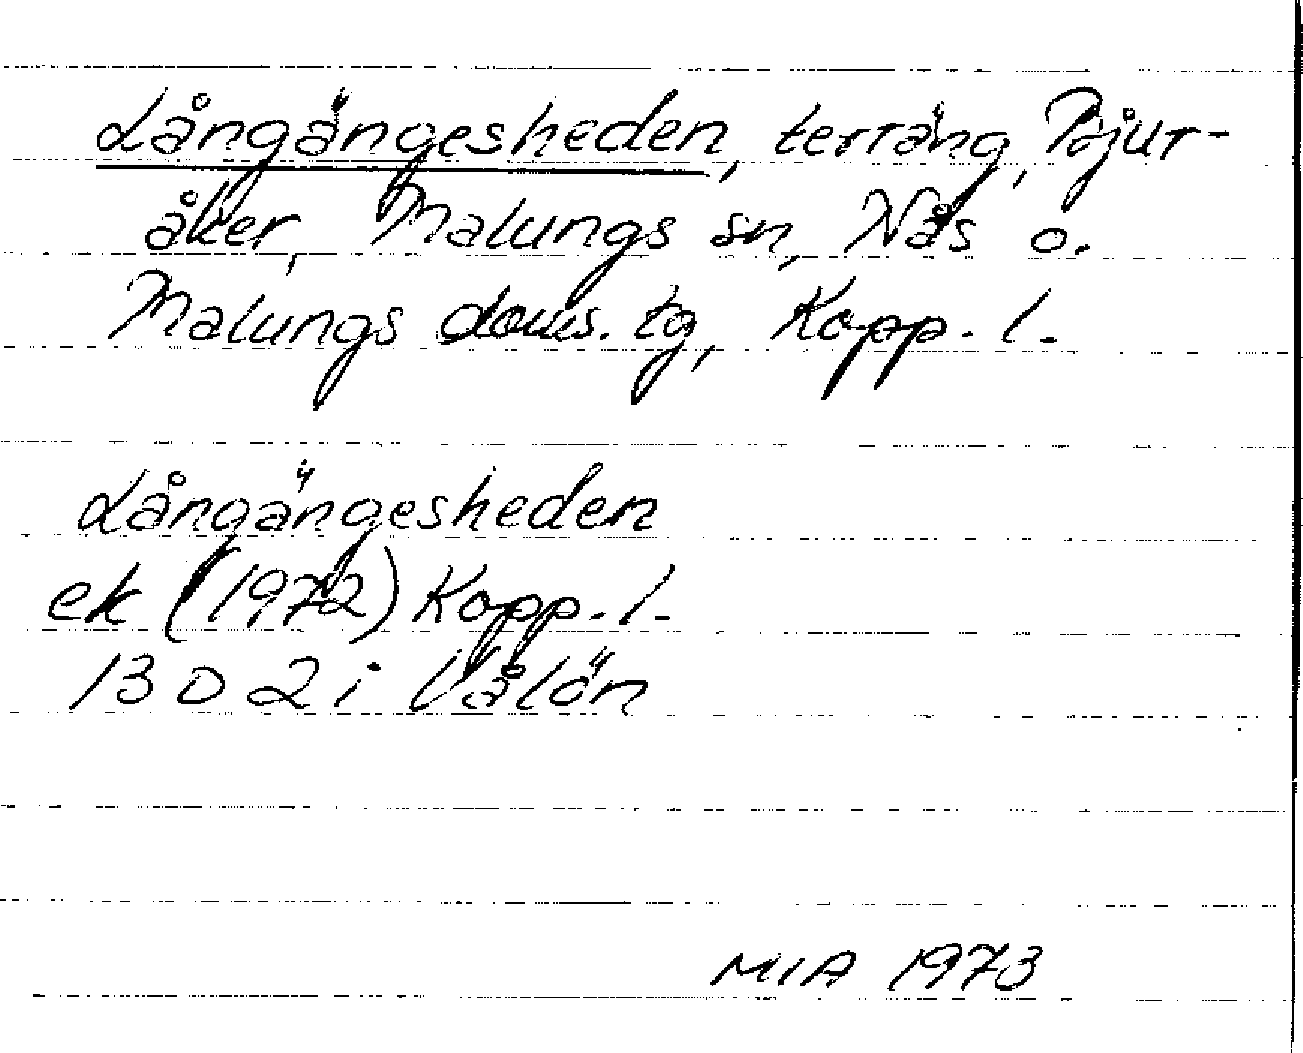 Långängesheden, terräng, Pajur-
åker, Malungs sn, Nås o.
Malungs doms. tg, Kopp. l.
Långängesheden
ek (1972) Kopp. l.
13 D 2 i Vålön
MIA 1973